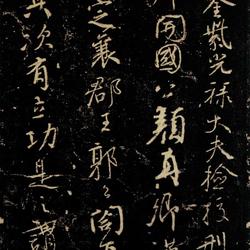 金紫光祿大夫撿挍刑
開國公顏真卿
定襄郡王郭公閤下
其次有立功是之謂